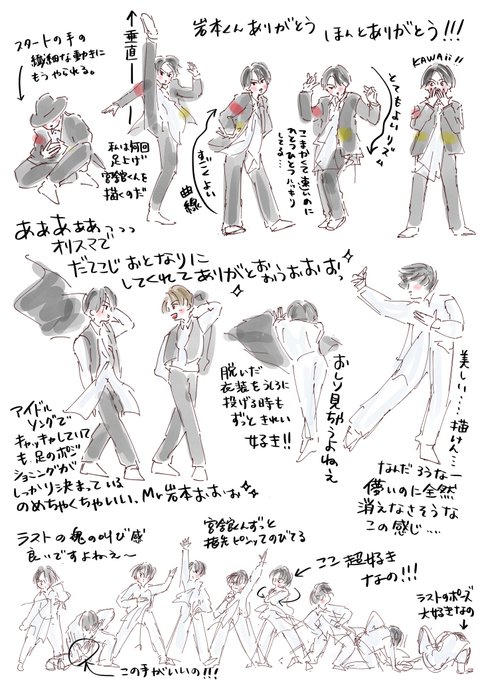 岩本くんありがとう
ほんとありがとう!!!
スタートの手の
繊細な動きに
もうやられる。
垂直
私は何回
足上げ
宮舘くんを
描くのだ
すごくよい
曲線
こまかくて速いのに
ひとつひとつハッキリ
してる…
とてもよいリズム
KAWAii!!
あぁあぁぁっっっ
オリスマで
だてこじおとなりに
してくれてありがとおぉうおぉおぉっ
アイドル
ソングで
キャッキャしていて
も足のポジ
ショニングが
しっかり決まっている
のめちゃくちゃいい、Mr岩本ぉぉぉぉ
脱いだ
衣装をうしろに
投げる時も
ずっときれい
好き!!
おしり見ちゃうよねぇ
美しい…描けん…
なんだろうなー
儚いのに全然
消えなさそうな
この感じ…
ラストの魂の叫び感
良いですよねぇ〜
宮舘くんずっと
指先ピンッてのびてる
ここ超好き
なの!!!
ラストのポーズ
大好きなの
この手がいいの!!!